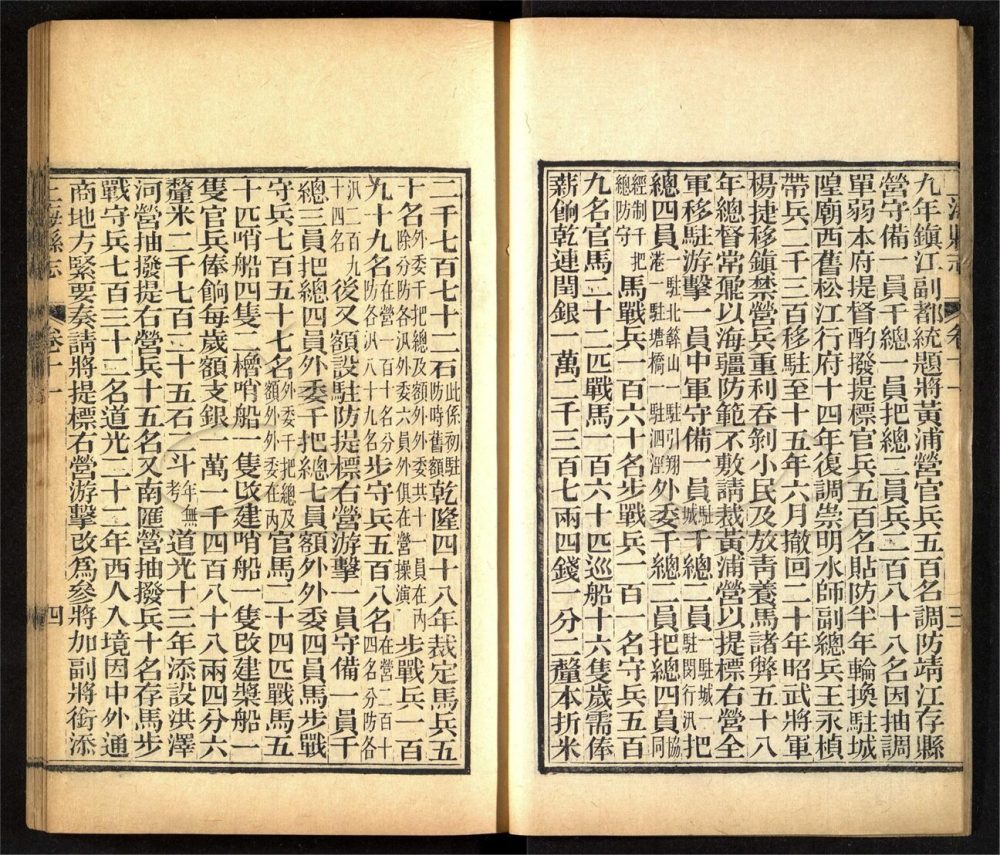 上海縣志 卷十一 三
九年鎮江副都統題將黃浦營官兵五百名調防靖江存縣
營守備一員千總一員把總二員兵二百八十八名因抽調
單弱本府提督酌撥提標官兵五百名貼防半年輪換駐城
隍廟西舊松江行府十四年復調崇明水師副總兵王永楨
帶兵二千三百移駐至十五年六月撤回二十年昭武將軍
楊捷移鎮禁營兵重利吞剝小民及放青養馬諸弊五十八
年總督常鼐以海疆防範不敷請裁黃浦營以提標右營全
軍移駐游擊一員中軍守備一員駐城千總二員一駐城一駐閔行汛把
總四員一駐北簳山一駐引翔港一駐塘橋一駐泗涇外委千總二員把總四員協同
經制千把總防守馬戰兵一百六十名步戰兵一百一名守兵五百
九名官馬二十二匹戰馬一百六十匹巡船十六隻歲需俸
薪餉乾連閏銀一萬二千三百七兩四錢一分二釐本折米
二千七百七十二石此係初駐防時舊額乾隆四十八年裁定馬兵五
十名外委千把總及額外外委共十一員在內除分防各汛外委六員外俱在營操演步戰兵一百
九十九名在營一百十名分防各汛八十九名步守兵五百八名在營二百十四名分防各
汛二百九十四名後又額設駐防提標右營游擊一員守備一員千
總三員把總四員外委千把總七員額外外委四員馬步戰
守兵七百五十七名外委千把總及額外外委在內官馬二十四匹戰馬五
十匹哨船四隻二櫓哨船一隻改建哨船一隻改建槳船一
隻官兵俸餉每歲額支銀一萬一千四百八十八兩四分六
釐米二千七百二十五石二斗年無考道光十三年添設洪澤
河營抽撥提右營兵十五名又南匯營抽撥兵十名存馬步
戰守兵七百三十二名道光二十二年西人入境因中外通
商地方緊要奏請將提標右營游擊改為參將加副將銜添
上海縣志 卷十一 四